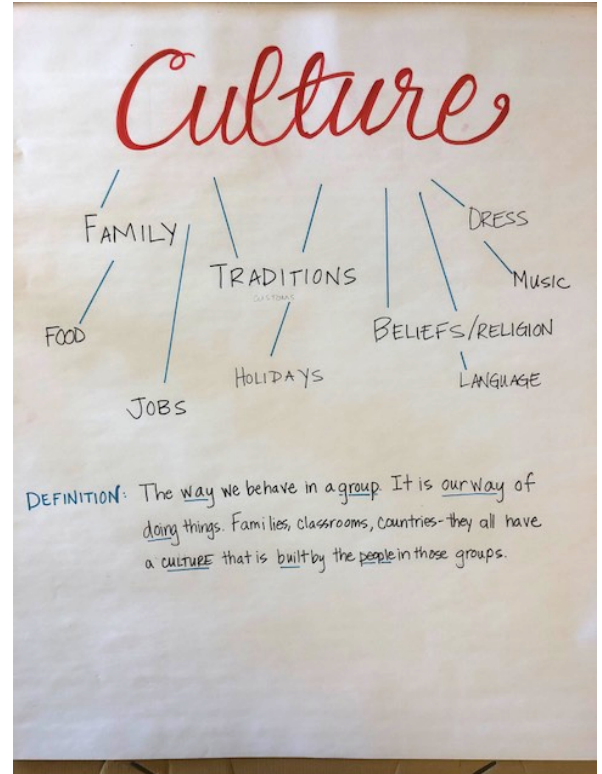 Culture
FAMILY
DRESS
TRADITIONS
CUSTOMS
MUSIC
FOOD
BELIEFS/RELIGION
HOLIDAYS
LANGUAGE
JOBS
DEFINITION: The way we behave in a group. It is our way of
doing things. Families, classrooms, countries- they all have
a CULTURE that is built by the people in those groups.